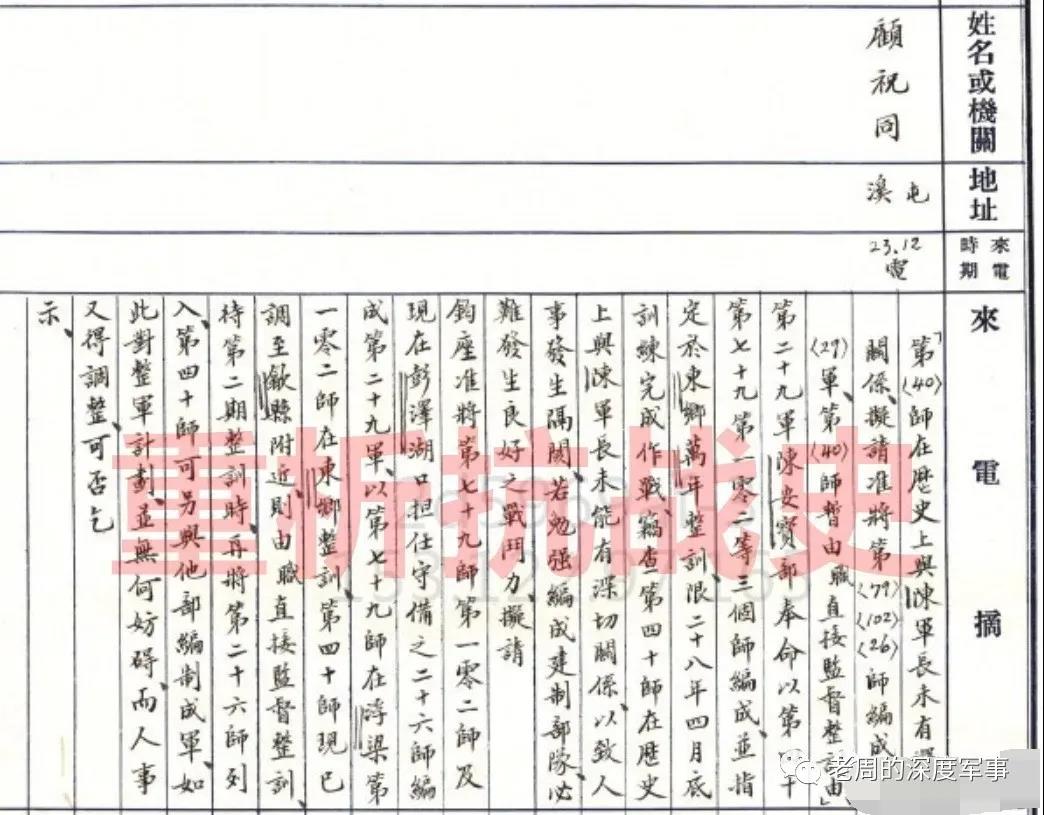 姓名或機關
地址
來電時期
來電摘
顧祝同
屯溪
23.12電
「第(40)師在歷史上與陳軍長未有
關係、擬請准將第(79)(102)(26)師編成
(29)軍、第(40)師暫由職直接監督整訓由」
第二十九軍陳安寶部奉命以第四十
第七十九第一零二等三個師編成、並指
定於東鄉萬年整訓、限二十八年四月底
訓練完成作戰、竊查第四十師在歷史
上與陳軍長未能有深切關係、以致人
事發生隔閡、若勉强編成建制部隊、必
難發生良好之戰鬥力、擬請
鈞座准將第七十九師第一零二師及
現在彭澤湖口担任守備之二十六師編
成第二十九軍、以第七十九師在浮梁第
一零二師在東鄉整訓、第四十師現已
調至歙縣附近、則由職直接監督整訓、
待第二期整訓時、再將第二十六師列
入、第四十師可另與他部編制成軍、如
此對整軍計劃、並無何妨碍、而人事
又得調整、可否乞
示、
重析抗战史
老周的深度军事